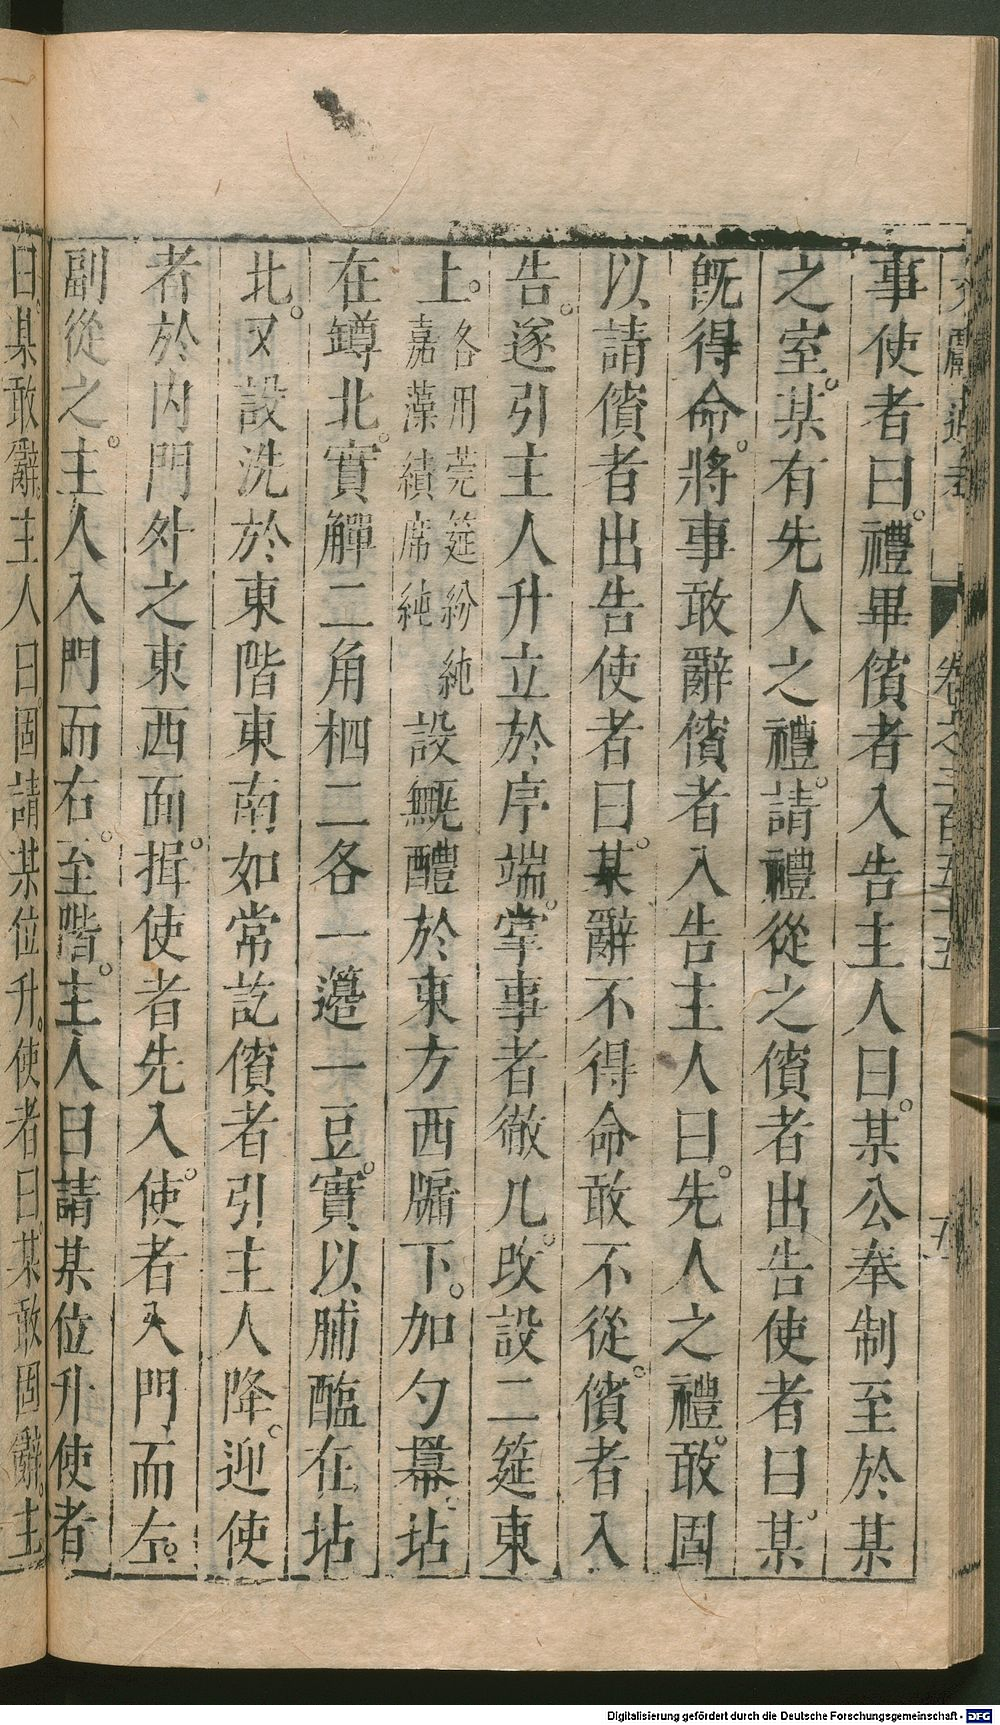 文獻通考 卷之二百五十五
事使者曰。禮畢儐者入告主人曰。某公奉制至於某
之室。某有先人之禮。請禮從之儐者出告使者曰某。
旣得命。將事敢辭儐者入告主人曰。先人之禮。敢固
以請儐者出告使者曰。某辭不得命敢不從。儐者入
告。遂引主人升立於序端。掌事者徹几。改設二筵東
上。各用莞筵紛純嘉藻繢席純設甒醴於東方西牖下。加勺冪。坫
在罇北。實觶二角柶二各一籩一豆。實以脯醢在坫
北。又設洗於東階東南如常訖儐者引主人降。迎使
者於內門外之東西面。揖使者先入。使者入門而左。
副從之。主人入門而右。至階。主人曰請某位升使者
曰。某敢辭。主人曰。固請某位升。使者曰。某敢固辭。主
Digitalisierung gefördert durch die Deutsche Forschungsgemeinschaft - DFG